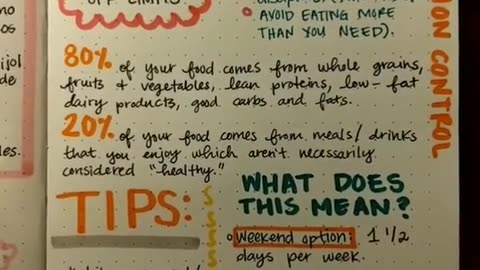 OFF LIMITS
AVOID EATING MORE
THAN YOU NEED).
80% of your food comes from whole grains,
fruits + vegetables, lean proteins, low-fat
dairy products, good carbs and fats.
20% of your food comes from meals/drinks
that you enjoy which aren't necessarily
considered "healthy."
TIPS:
WHAT DOES
THIS MEAN?
Weekend option: 1 1/2
days per week.
CONTROL